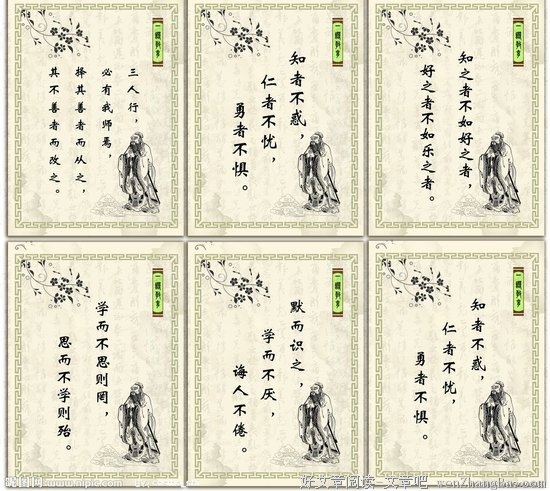 三人行，
必有我师焉，
择其善者而从之，
其不善者而改之。
知者不惑，
仁者不忧，
勇者不惧。
知之者不如好之者，
好之者不如乐之者。
学而不思则罔，
思而不学则殆。
默而识之，
学而不厌，
诲人不倦。
知者不惑，
仁者不忧，
勇者不惧。
昵图网 www.nipic.com
好文章阅读-文章吧-wenzhangba.com